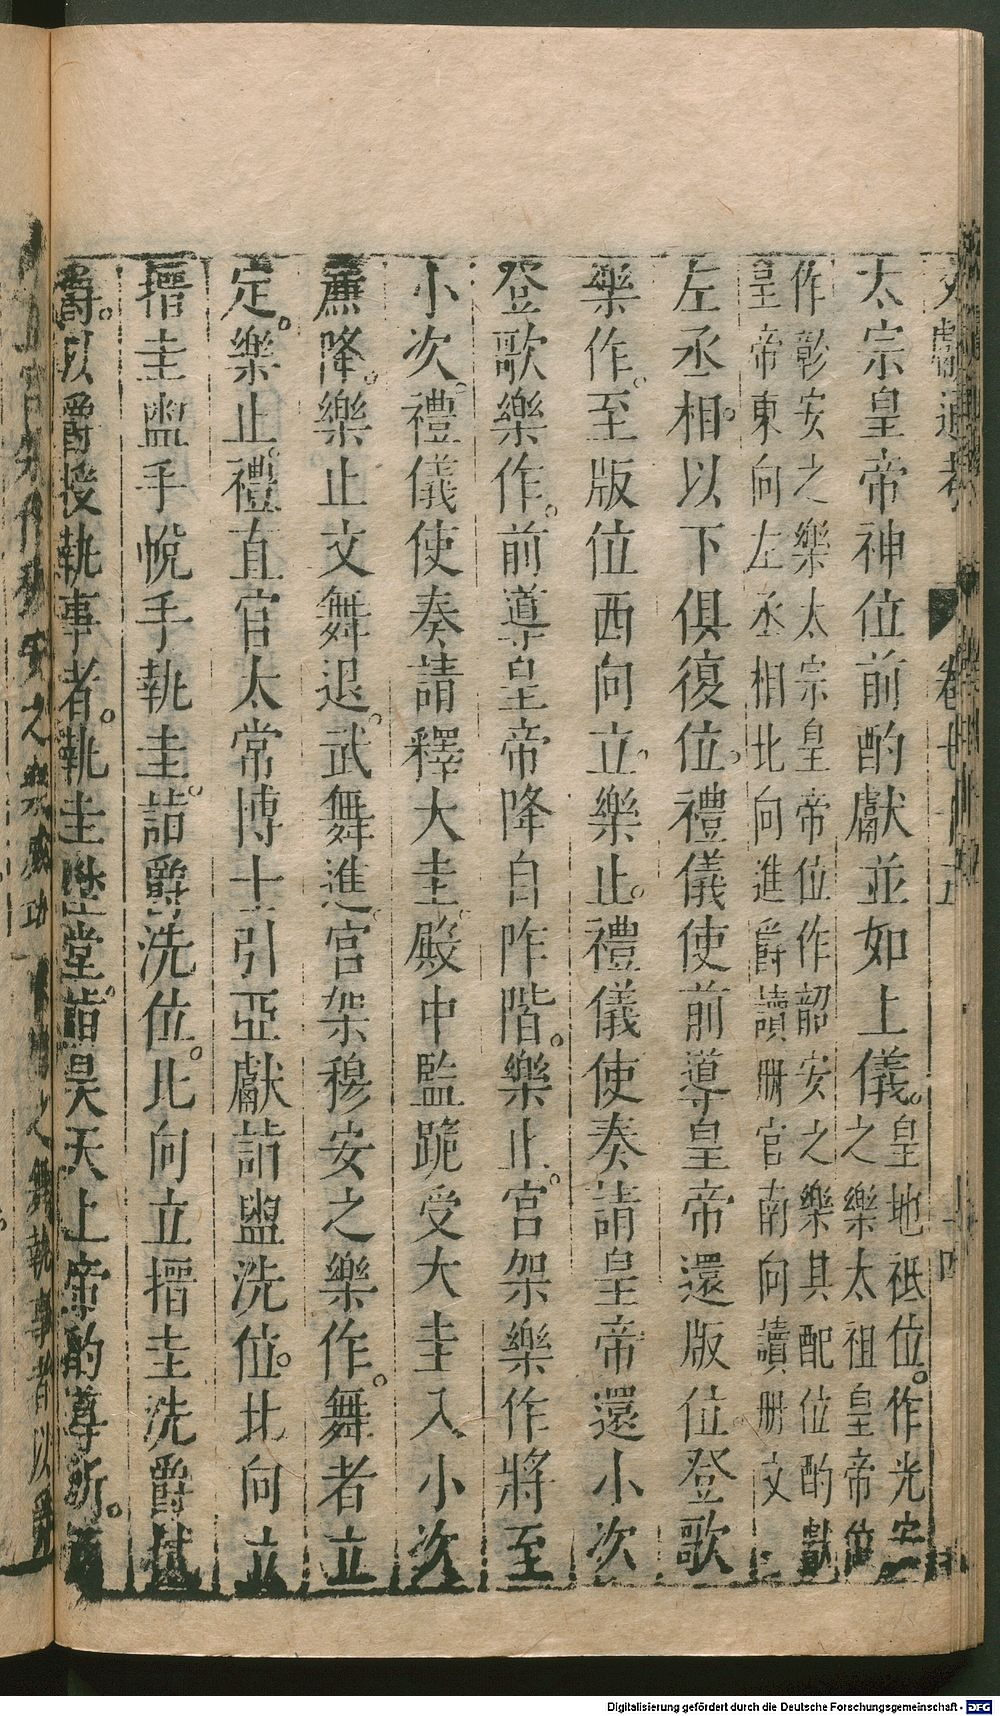 文獻通考 卷七十五 十四
太宗皇帝神位前酌獻並如上儀。皇地祇位。作光安
之樂太祖皇帝位
作彰安之樂太宗皇帝位作韶安之樂其配位酌獻
皇帝東向左丞相北向進爵讀冊官南向讀冊文
左丞相。以下俱復位。禮儀使前導皇帝還版位。登歌
樂作。至版位西向立。樂止。禮儀使奏請皇帝還小次
登歌樂作。前導皇帝降自阼階。樂止。宮架樂作將至
小次。禮儀使奏請釋大圭。殿中監跪受大圭入小次
簾降。樂止文舞退。武舞進。宮架穆安之樂作。舞者立
定。樂止。禮直官太常博士引亞獻詣盥洗位。北向立
搢圭盥手帨手執圭。詣爵洗位。北向立搢圭洗爵拭
爵。以爵授執事者。執圭陞堂。詣昊天上帝酌尊所。
安之樂
之舞執事者以爵
Digitalisierung gefördert durch die Deutsche Forschungsgemeinschaft - DFG